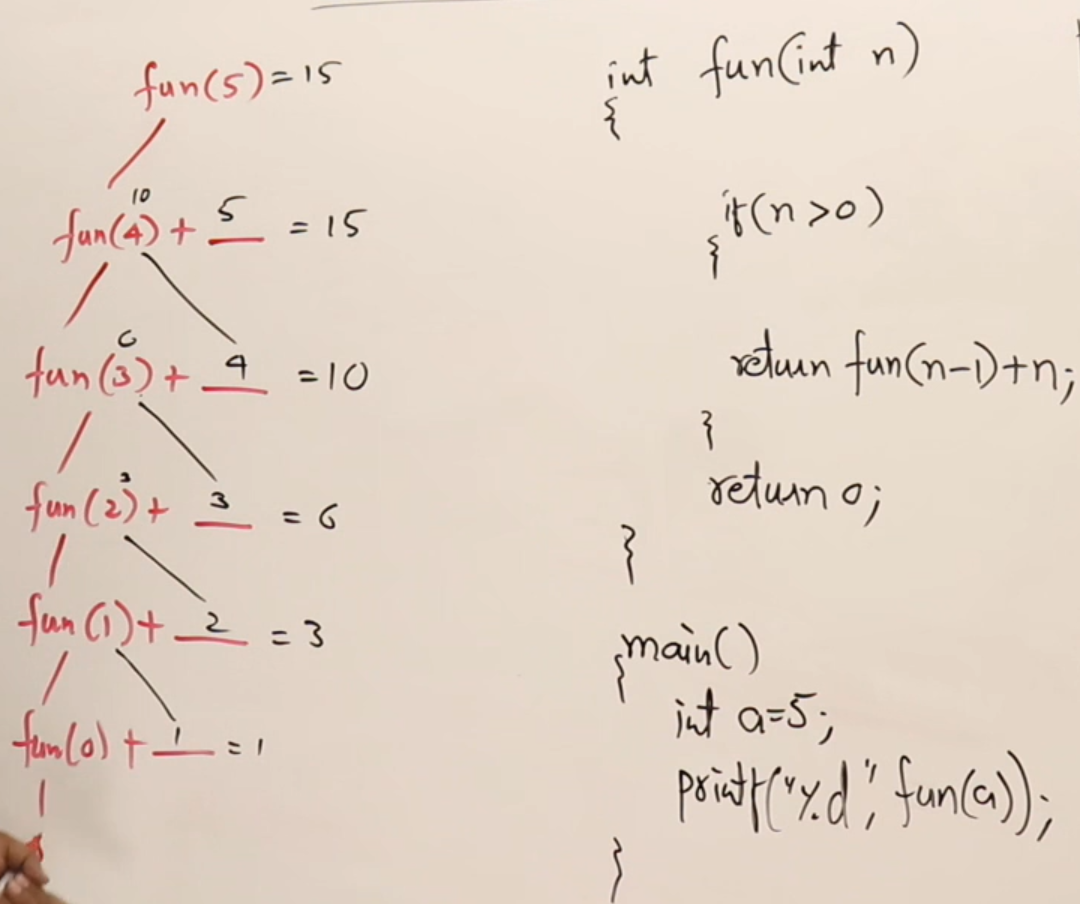 fun(5) = 15
10
fun(4) + 5 = 15
6
fun(3) + 4 = 10
3
fun(2) + 3 = 6
fun(1) + 2 = 3
fun(0) + 1 = 1
int fun(int n)
{
if(n>0)
{
return fun(n-1)+n;
}
return 0;
}
main()
{
int a=5;
printf("%d", fun(a));
}